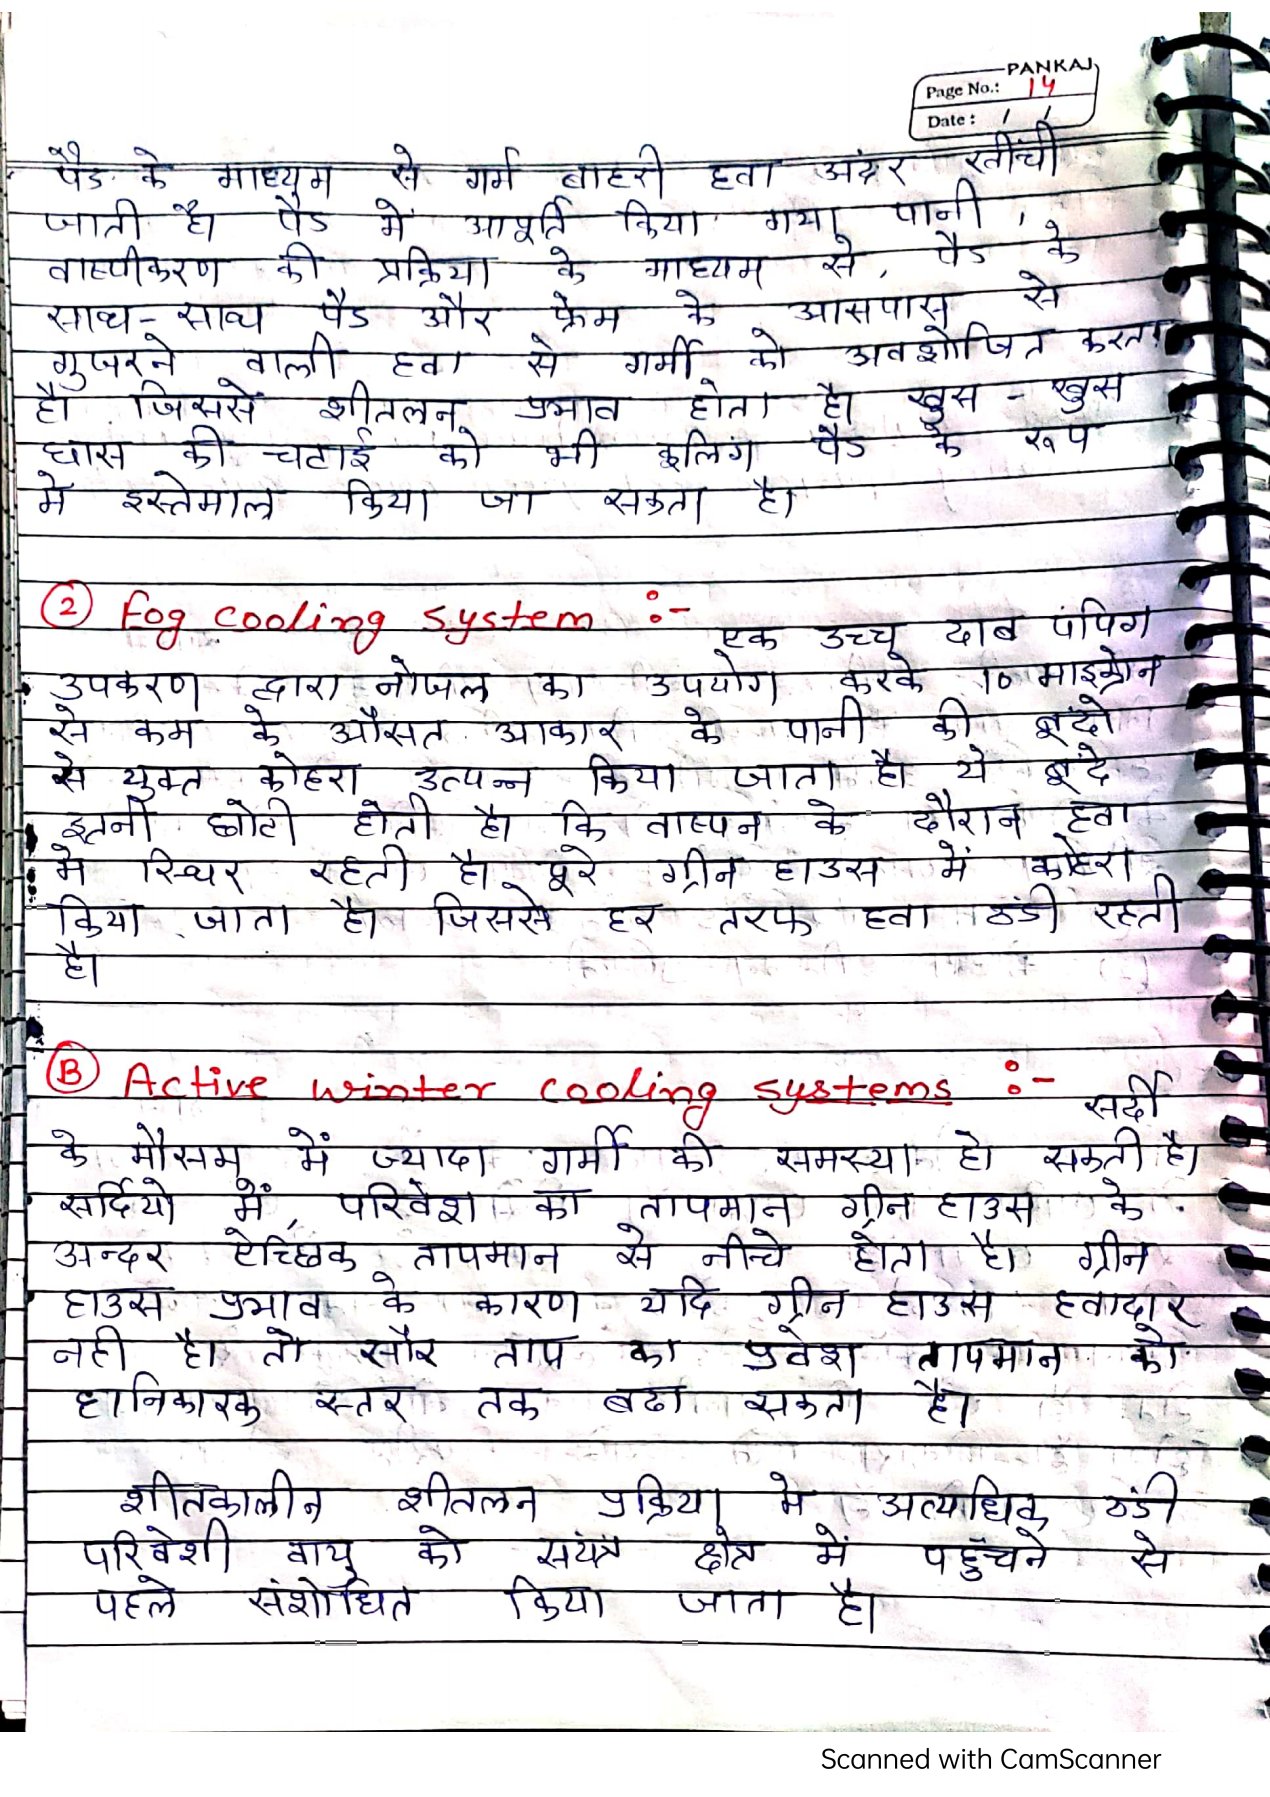 PANKAJ
Page No.: 14
Date : / /
पैड के माध्यम से गर्म बाहरी हवा अंदर खींची
जाती है। पैड में आपूर्ति किया गया पानी,
वाष्पीकरण की प्रक्रिया के माध्यम से, पैड के
साथ-साथ पैड और फ्रेम के आसपास से
गुजरने वाली हवा से गर्मी को अवशोषित करता
है। जिससे शीतलन प्रभाव होता है। खुस - खुस
घास की चटाई को भी कूलिंग पैड के रूप
में इस्तेमाल किया जा सकता है।
② Fog cooling system :-
एक उच्च दाब पंपिग
उपकरण द्वारा नोजल का उपयोग करके 10 माइक्रोन
से कम के औसत आकार के पानी की बूंदो
से युक्त कोहरा उत्पन्न किया जाता है। ये बूंदे
इतनी छोटी होती है। कि वाष्पन के दौरान हवा
मे स्थिर रहती है। पूरे ग्रीन हाउस में कोहरा
किया जाता है। जिससे हर तरफ हवा ठंडी रहती
है।
Ⓑ Active winter cooling systems :-
सर्दी
के मौसम में ज्यादा गर्मी की समस्या हो सकती है।
सर्दियो में, परिवेश का तापमान ग्रीन हाउस के
अन्दर ऐच्छिक तापमान से नीचे होता है। ग्रीन
हाउस प्रभाव के कारण यदि ग्रीन हाउस हवादार
नही है। तो सौर ताप का प्रवेश तापमान को
हानिकारक स्तर तक बढा सकता है।
शीतकालीन शीतलन प्रक्रिया मे अत्याधिक ठंडी
परिवेशी वायु को सयंत्र क्षेत्र में पहुँचने से
पहले संशोधित किया जाता है।
Scanned with CamScanner